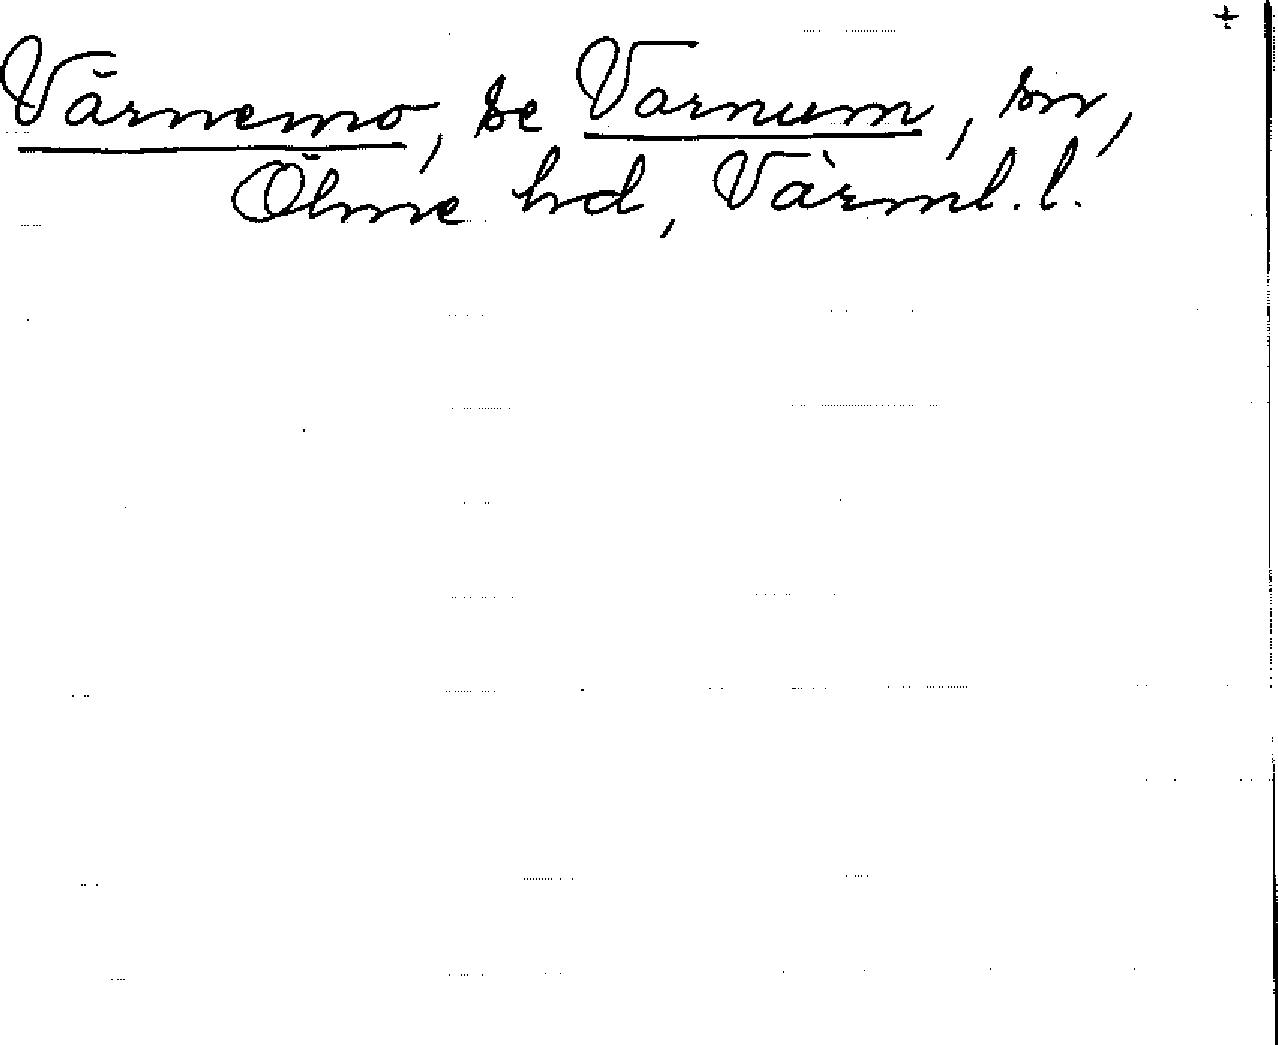 Värnemo, se Varnum, sn,
Ölme hd, Värml. l.